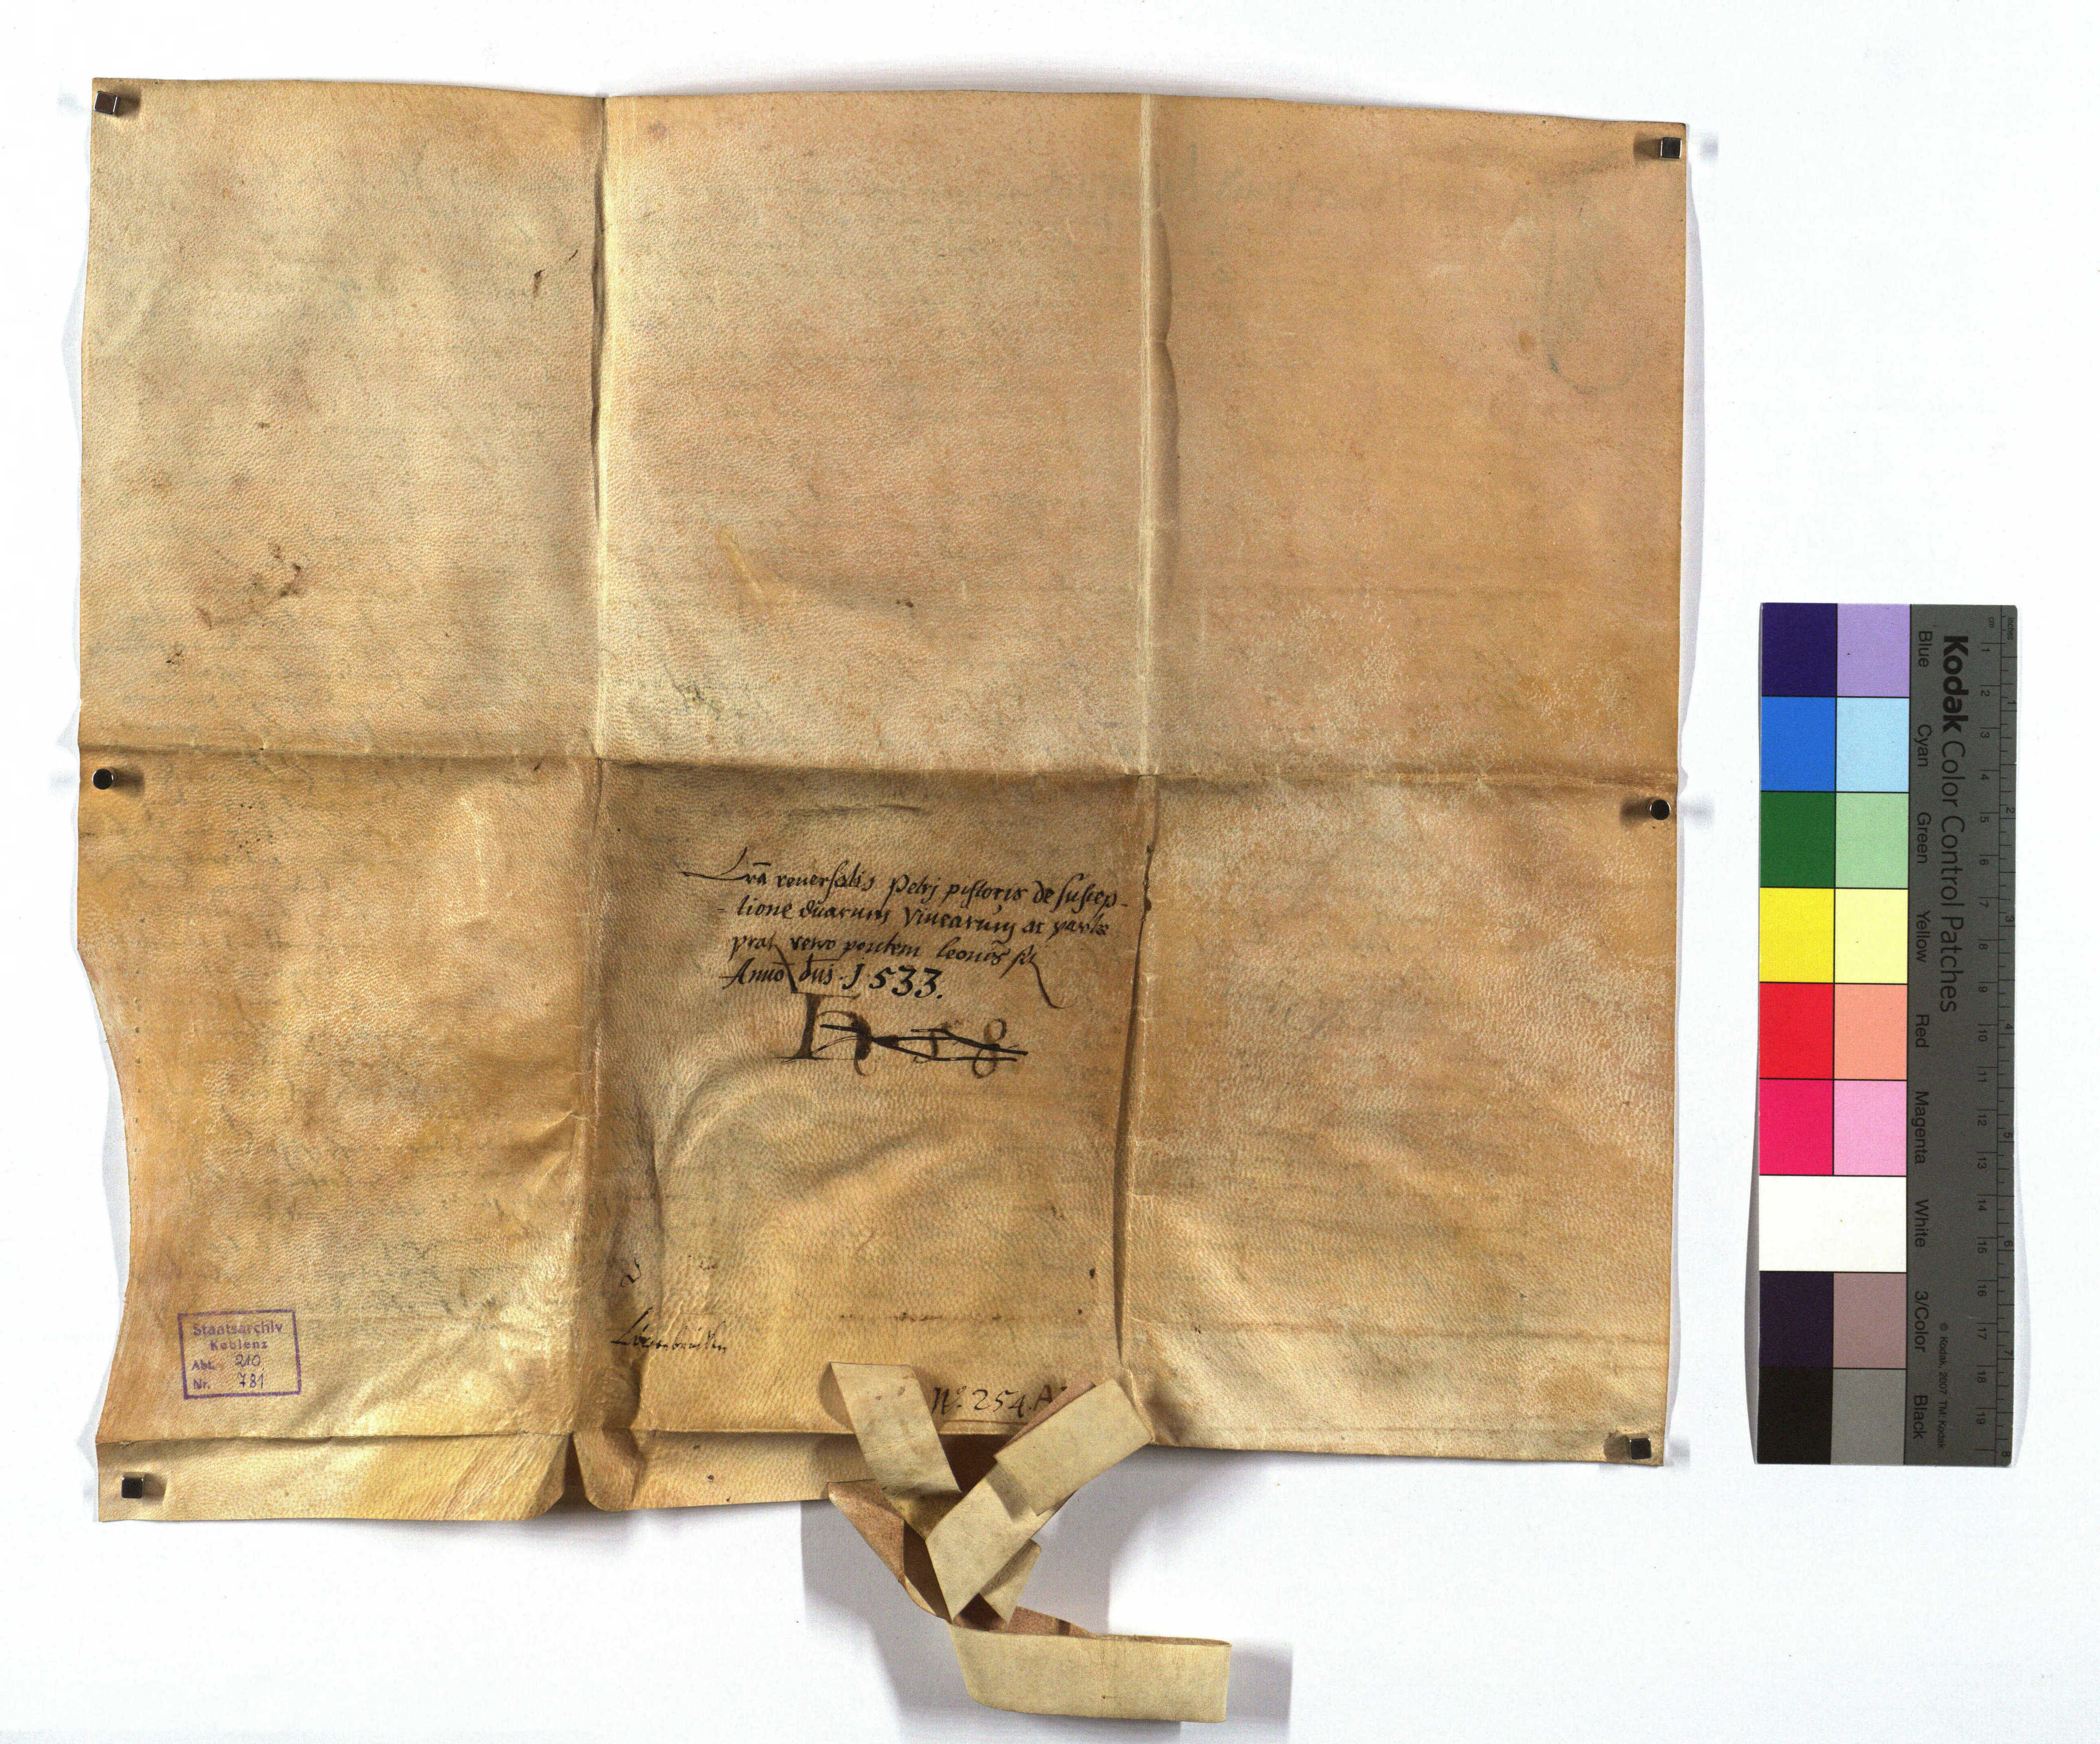 Lrā reuersalis Petrj pistoris de suscep-
-tione duarum vinearum ac
prati pontem leonis
Anno dnj · J533.
Löwenbrücken
Nº. 254. A
Staatsarchiv
Koblenz
Abt. 210
Nr. 781
Kodak Color Control Patches
Blue Cyan Green Yellow Red Magenta White 3/Color Black
© Kodak, 2007 TM: Kodak
inches 1 2 3 4 5 6 7 8
cm 1 2 3 4 5 6 7 8 9 10 11 12 13 14 15 16 17 18 19